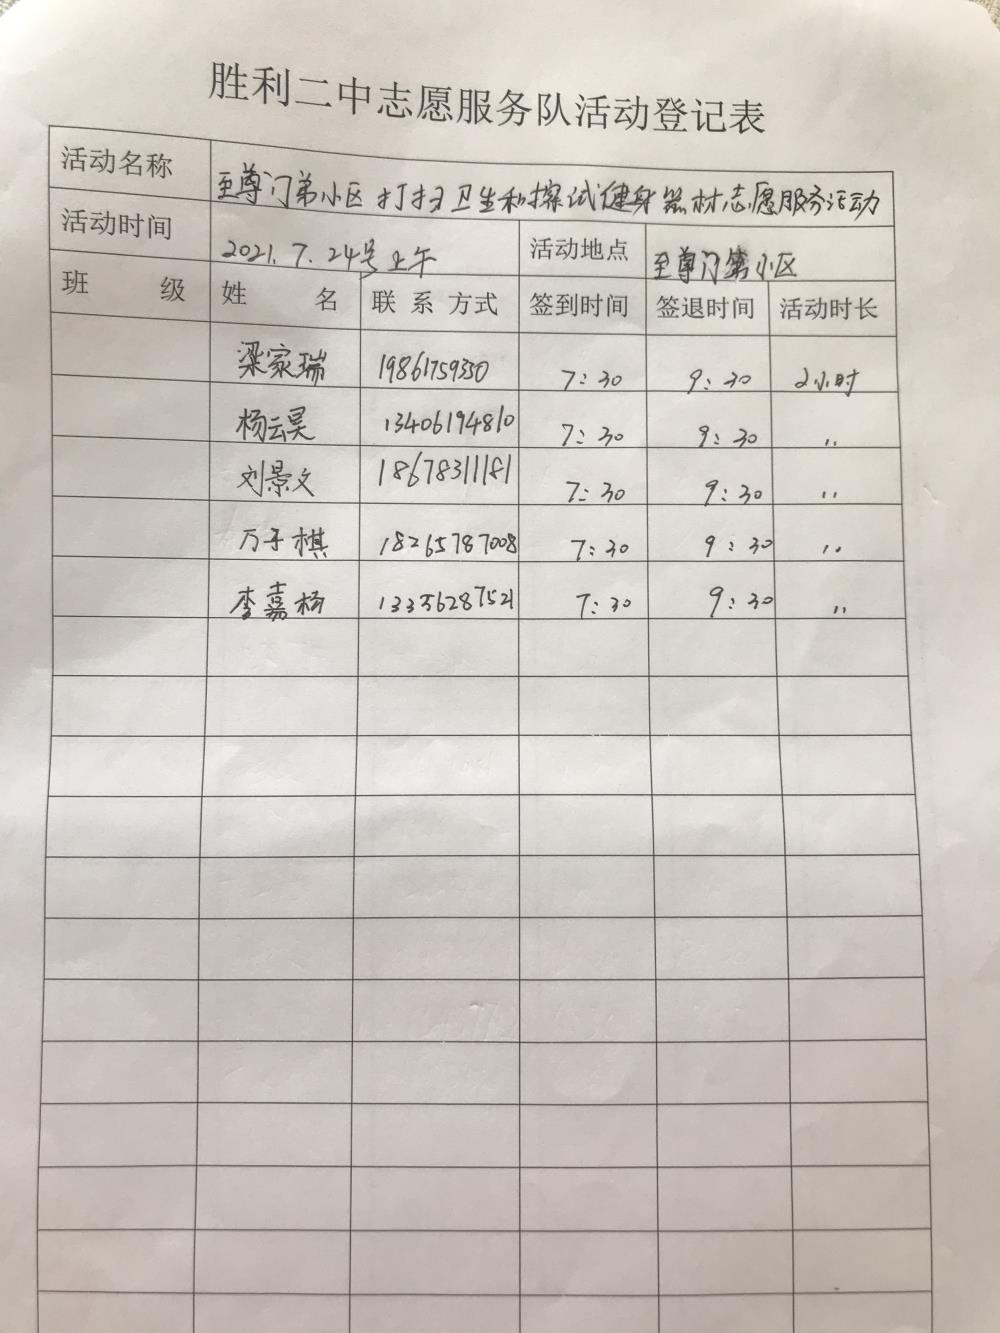 胜利二中志愿服务队活动登记表
活动名称 至尊门第小区打扫卫生和擦试健身器材志愿服务活动
活动时间 2021.7.24号上午 活动地点 至尊门第小区
班 级 姓 名 联系方式 签到时间 签退时间 活动时长
梁家瑞 19861759350 7:30 9:30 2小时
杨云昊 13406194810 7:30 9:30 〃
刘景文 18678311181 7:30 9:30 〃
万子棋 18265787008 7:30 9:30 〃
李嘉杨 13356287521 7:30 9:30 〃